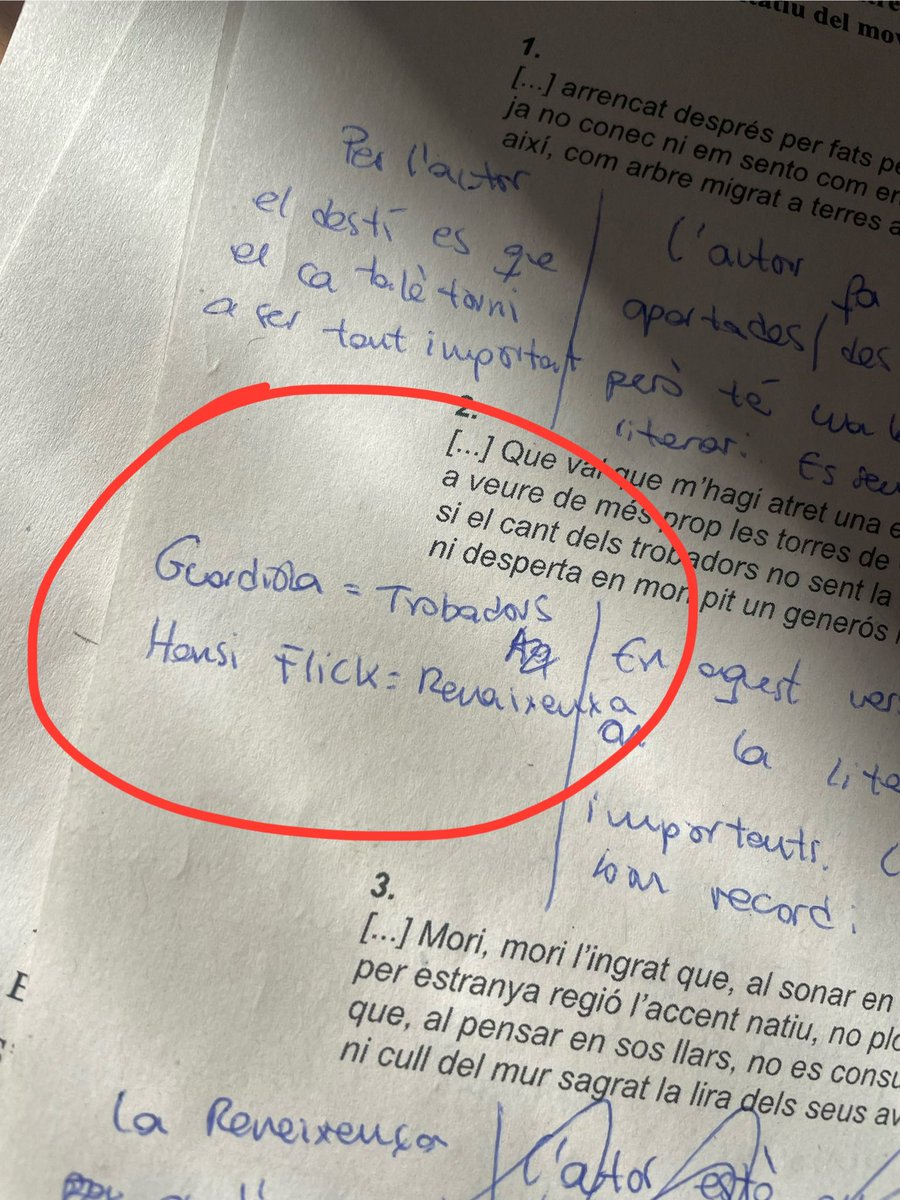 1.
[...] arrencat després per fats
ja no conec ni em sento com
així, com arbre migrat a terres a
Per l'autor
el destí es que
el ca talè torni
a ser tant important
l'autor fa
aportades/des
però té
literari. Es
2.
[...] Que val que m'hagi atret una
a veure de més prop les torres de
si el cant dels trobadors no sent la
ni desperta en mon pit un generós
Guardiola = Trobadors
Hansi Flick = Renaixenxa
En aquest
la
importants.
record i
3.
[...] Mori, mori l'ingrat que, al sonar en
per estranya regió l'accent natiu, no
que, al pensar en sos llars, no es
ni cull del mur sagrat la lira dels seus
La Reneixença
l'autor està